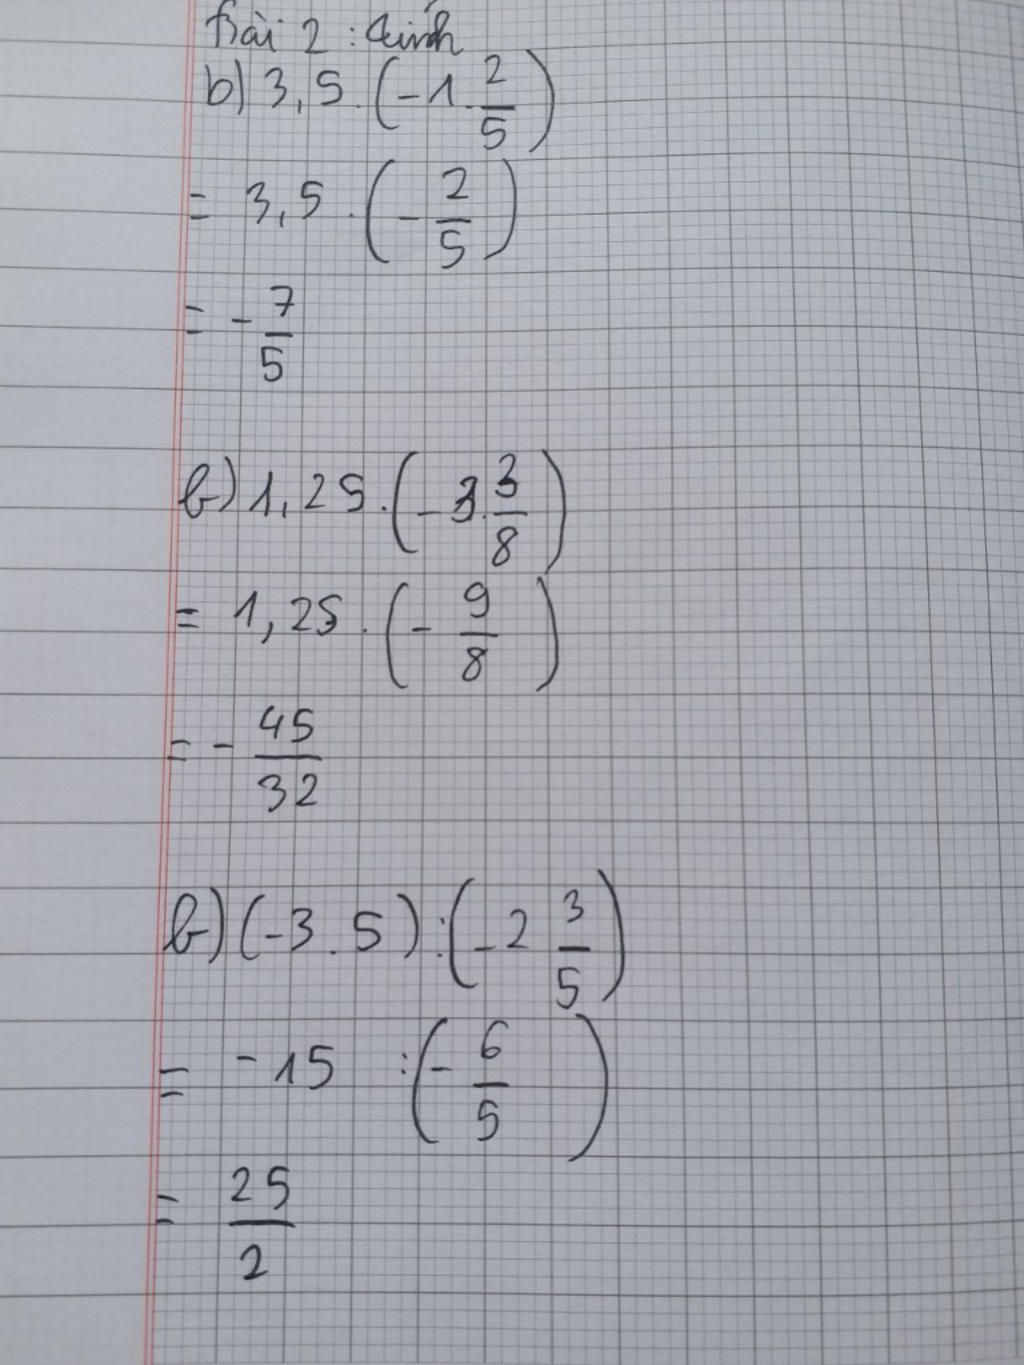 Bài 2 : Tính
b) 3,5 . (-1 . 2/5)
= 3,5 . (- 2/5)
= - 7/5
b) 1,25 . (-3 . 3/8)
= 1,25 . (- 9/8)
= - 45/32
b) (-3 . 5) : (-2 3/5)
= -15 : (- 6/5)
= 25/2